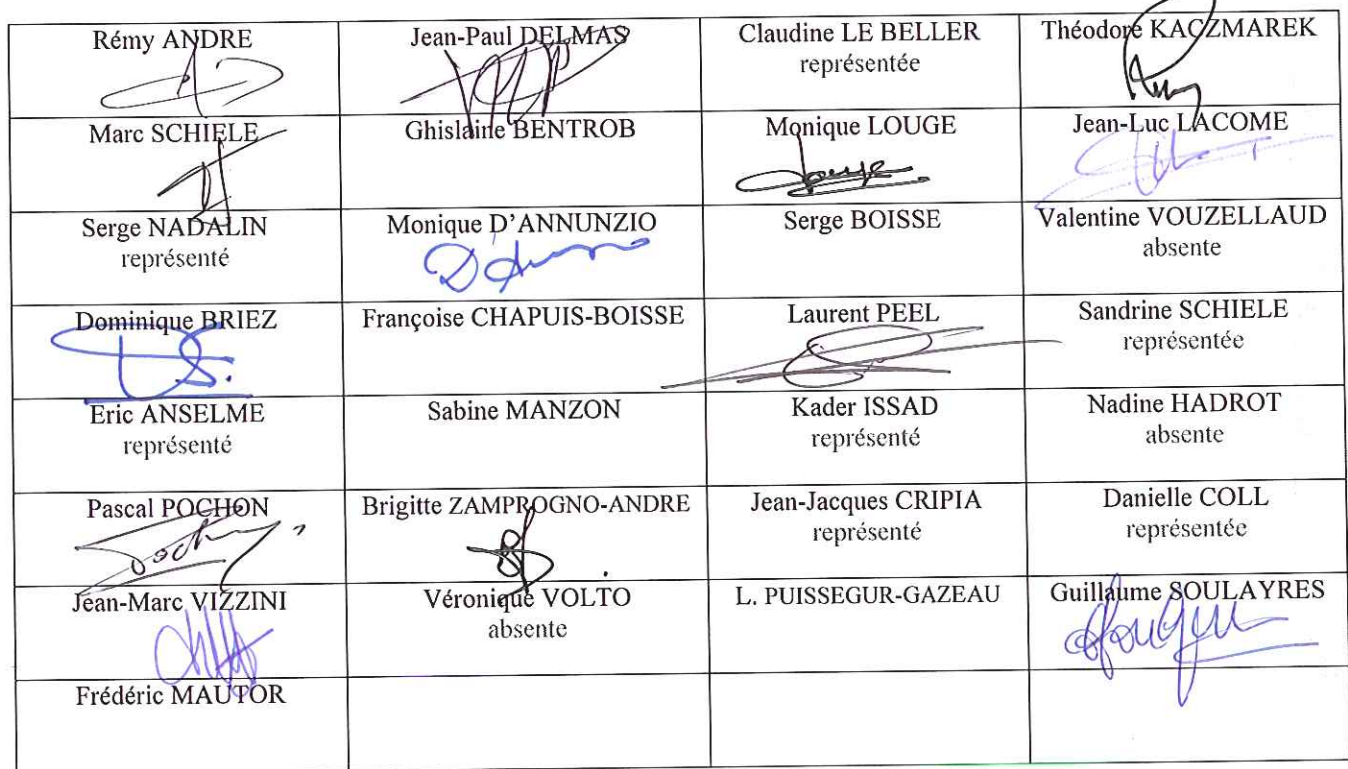 Rémy ANDRE
Jean-Paul DELMAS
Claudine LE BELLER
représentée
Théodore KACZMAREK
Marc SCHIELE
Ghislaine BENTROB
Monique LOUGE
Jean-Luc LACOME
Serge NADALIN
représenté
Monique D'ANNUNZIO
Serge BOISSE
Valentine VOUZELLAUD
absente
Dominique BRIEZ
Françoise CHAPUIS-BOISSE
Laurent PEEL
Sandrine SCHIELE
représentée
Eric ANSELME
représenté
Sabine MANZON
Kader ISSAD
représenté
Nadine HADROT
absente
Pascal POCHON
Brigitte ZAMPROGNO-ANDRE
Jean-Jacques CRIPIA
représenté
Danielle COLL
représentée
Jean-Marc VIZZINI
Véronique VOLTO
absente
L. PUISSEGUR-GAZEAU
Guillaume SOULAYRES
Frédéric MAUTOR